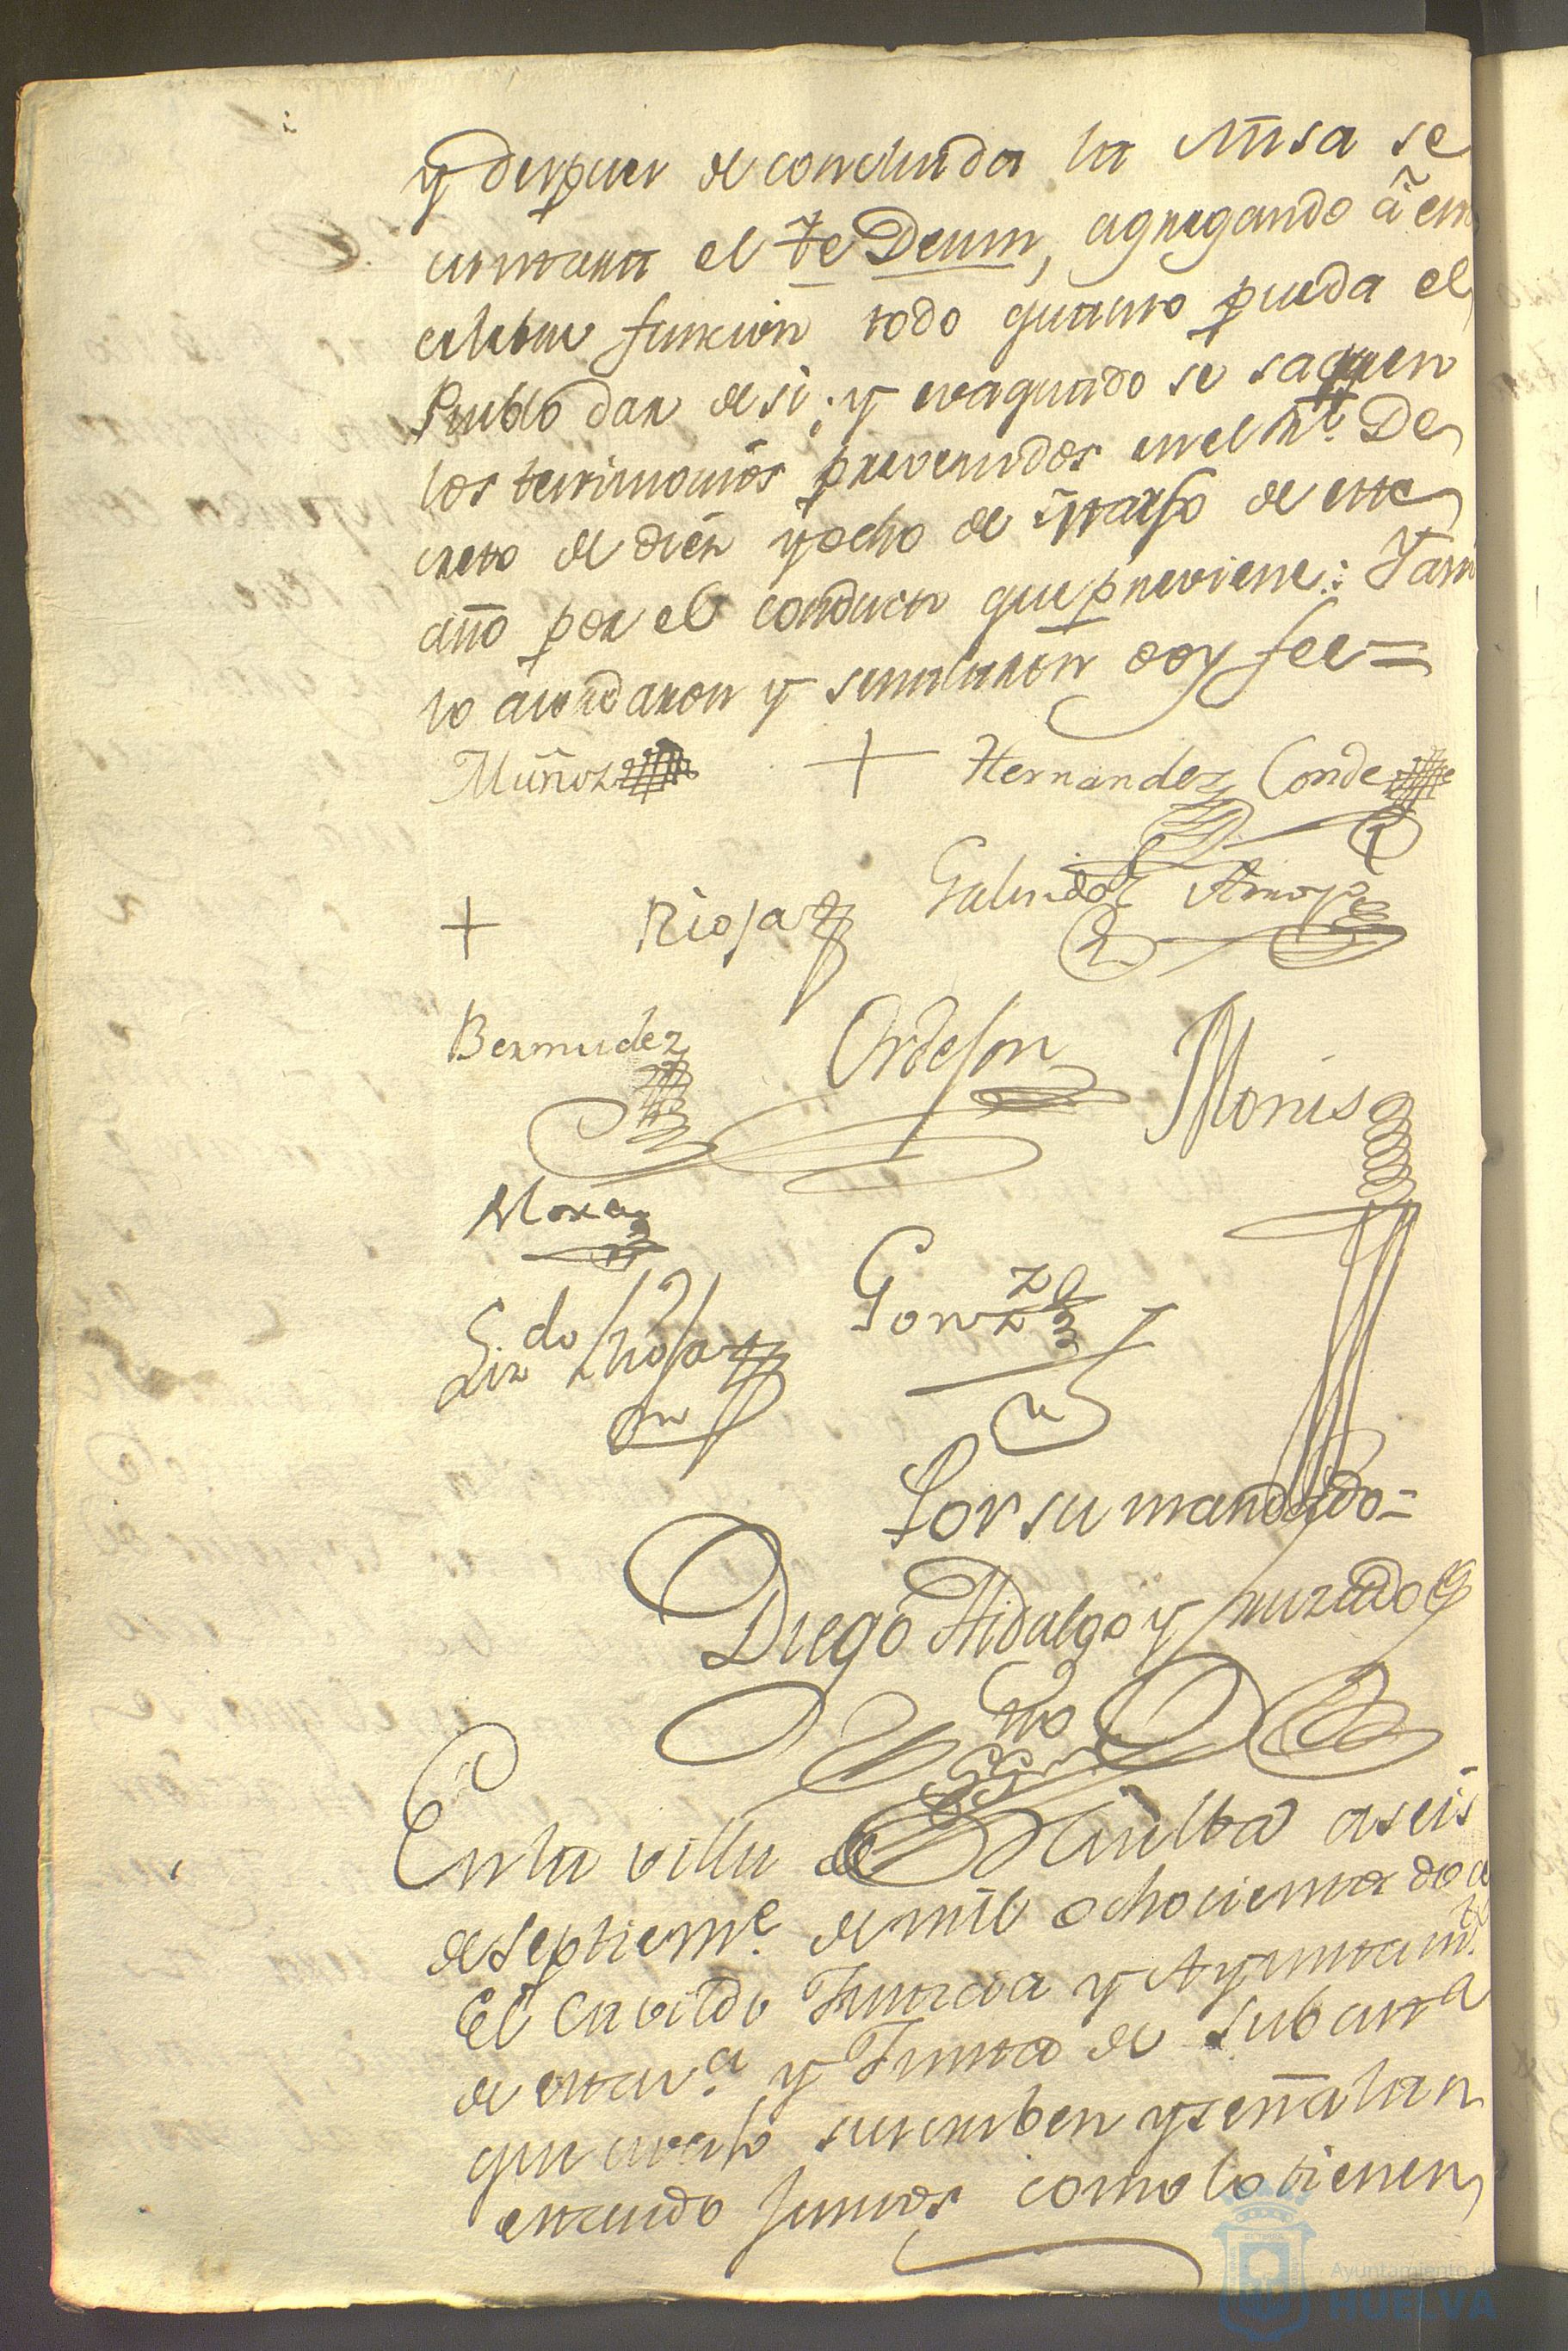 y despues de concluida la Misa se
cantara el Te Deum, agregando â esta
celebre funcion todo quanto pueda el
Pueblo dar de si; y evaquado se saquen
los testimonios prevenidos en el Rl. De
creto de diez y ocho de Marzo de este
año por el conducto que previene: Y asi
lo acordaron y señalaron doy fee =
Muñoz + Hernandez Conde
+ Rioja Galindo Amoya
Bermudez Ordejon Monis
Mora
Lizdo Rioja Gonzz
Por su mandado =
Diego Hidalgo y Hurtado
En la villa de Huelba a seis
de Septieme. de mil ochocientos doce
El Cavildo Justicia y Ayuntamto.
de esta va. y Junta de Subasta
que avajo suscriben y señalan
estando Juntos como lo tienen
Ayuntamiento de
HUELVA